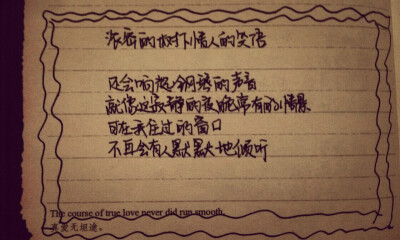 浓密的树下情人的笑语
又会响起钢琴的声音
就像这寂静的夜晚常有的情景
在我住过的窗口
不再会有人默默地倾听
The course of true love never did run smooth.
真爱无坦途。